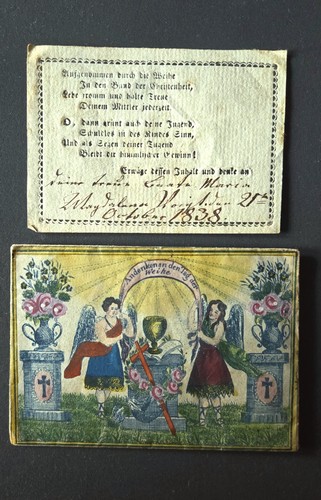 Aufgenommen durch die Weihe
In den Bund der Christenheit,
Lebe fromm und halte Treue
Deinem Mittler jederzeit.
O, dann grünt auch deine Jugend,
Schuldlos in des Kindes Sinn,
Und als Segen deiner Tugend
Bleibt der himmlischer Gewinn!
Erwäge dessen Inhalt und denke an
deine treue Maria
Magdalena 28ten
October 1838.
Andenken an den Tag der
Weihe